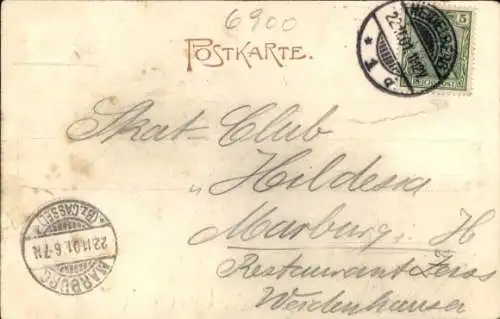 6900
POSTKARTE.
HEIDELBERG
22.11.01.
* 1. *
5
Skat-Club
"Hildesia
Marburg, H
Restaurant Zeiss
Weidenhausen
MARBURG
22.11.01. 6-7N
* (BZ. CASSEL) *